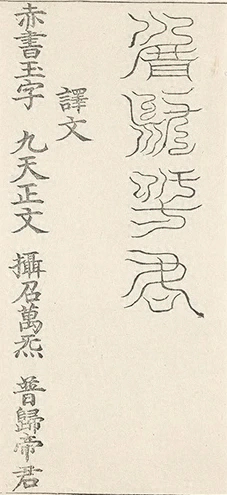 譯文
赤書玉字 九天正文 攝召萬炁 普歸帝君